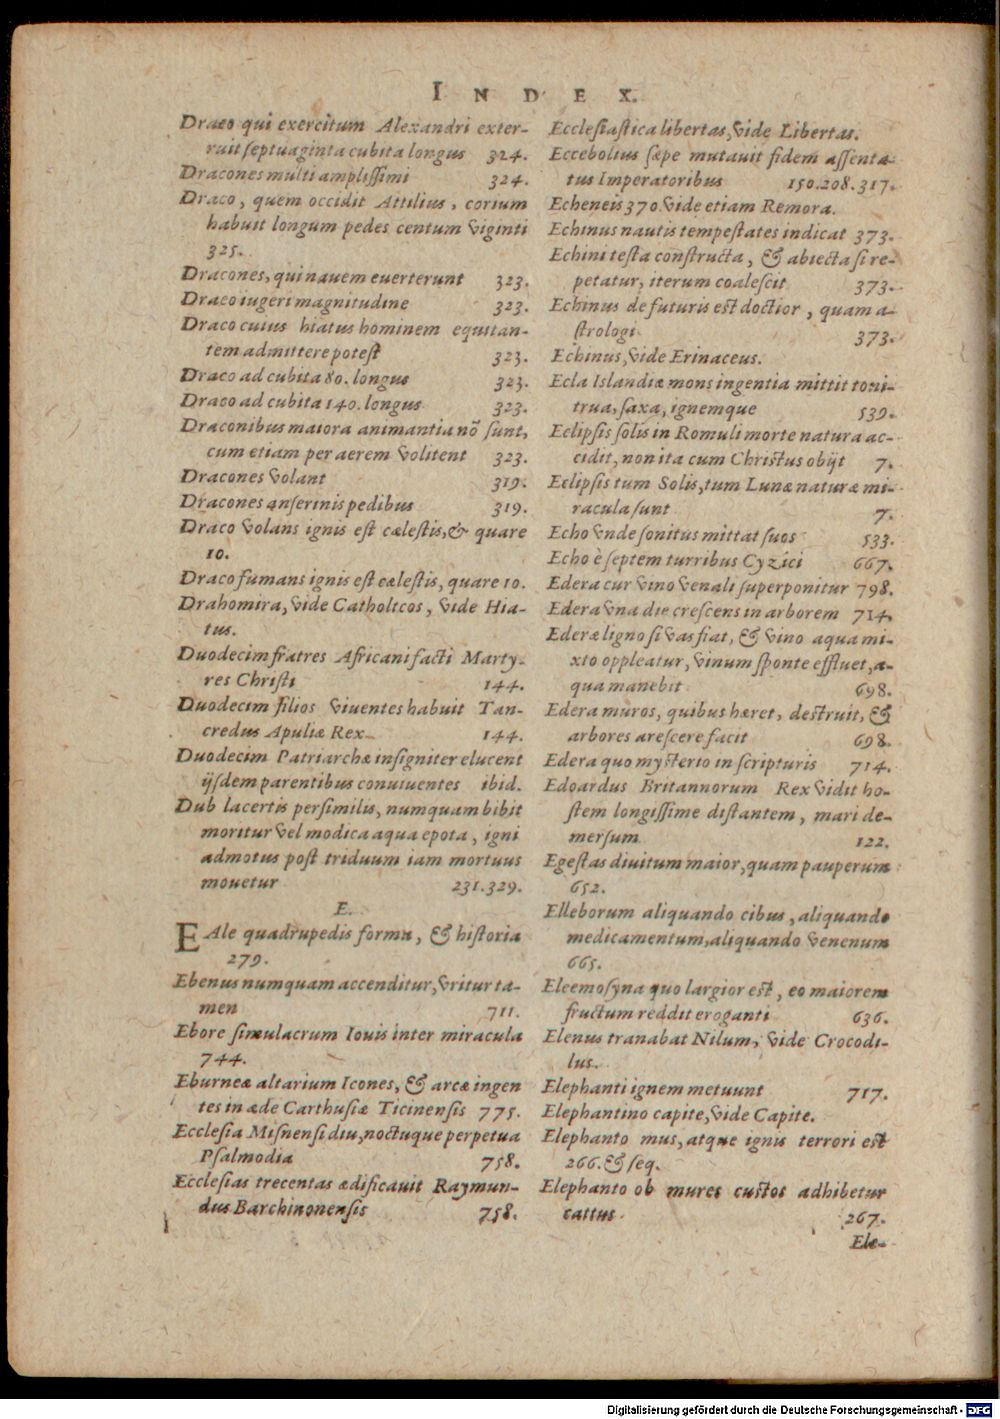 INDEX.
Draco qui exercitum Alexandri exter-
ruit septuaginta cubita longus 324.
Dracones multi amplissimi 324.
Draco, quem occidit Attilius, corium
habuit longum pedes centum viginti
325.
Dracones, qui nauem euerterunt 323.
Draco iugeri magnitudine 323.
Draco cuius hiatus hominem equitan-
tem admittere potest 323.
Draco ad cubita 80. longus 323.
Draco ad cubita 140. longus 323.
Draconibus maiora animantia nõ sunt,
cum etiam per aerem volitent 323.
Dracones volant 319.
Dracones anserinis pedibus 319.
Draco volans ignis est cælestis, & quare
10.
Draco fumans ignis est cælestis, quare 10.
Drahomira, vide Catholicos, vide Hia-
tus.
Duodecim fratres Africani facti Marty-
res Christi 144.
Duodecim filios viuentes habuit Tan-
credus Apuliæ Rex 144.
Duodecim Patriarchæ insigniter elucent
ijsdem parentibus conuiuentes ibid.
Dub lacertis persimilis, numquam bibit
moritur vel modica aqua epota, igni
admotus post triduum iam mortuus
mouetur 231.329.
E.
EAle quadrupedis forma, & historia
279.
Ebenus numquam accenditur, vritur ta-
men 711.
Ebore simulacrum Iouis inter miracula
744.
Eburneæ altarium Icones, & arcæ ingen
tes in æde Carthusiæ Ticinensis 775.
Ecclesia Misnensi diu, noctuque perpetua
Psalmodia 758.
Ecclesias trecentas ædificauit Raymun-
dus Barchinonensis 758.
Ecclesiastica libertas, vide Libertas.
Eccebolius sæpe mutauit fidem assenta-
tus Imperatoribus 150.208.317.
Echeneis 370. vide etiam Remora.
Echinus nautis tempestates indicat 373.
Echini testa constructa, & abiecta si re-
petatur, iterum coalescit 373.
Echinus de futuris est doctior, quam a-
strologi 373.
Echinus, vide Erinaceus.
Ecla Islandiæ mons ingentia mittit toni-
trua, saxa, ignemque 539.
Eclipsis solis in Romuli morte natura ac-
cidit, non ita cum Christus obijt 7.
Eclipsis tum Solis, tum Lunæ naturæ mi-
racula sunt 7.
Echo vnde sonitus mittat suos 533.
Echo è septem turribus Cyzici 667.
Edera cur vino venali superponitur 798.
Edera vna die crescens in arborem 714.
Ederæ ligno si vas fiat, & vino aqua mi-
xto oppleatur, vinum sponte effluet, a-
qua manebit 698.
Edera muros, quibus hæret, destruit, &
arbores arescere facit 698.
Edera quo mysterio in scripturis 714.
Edoardus Britannorum Rex vidit ho-
stem longissime distantem, mari de-
mersum 122.
Egestas diuitum maior, quam pauperum
652.
Elleborum aliquando cibus, aliquando
medicamentum, aliquando venenum
665.
Eleemosyna quo largior est, eo maiorem
fructum reddit eroganti 636.
Elenus tranabat Nilum, vide Crocodi-
lus.
Elephanti ignem metuunt 717.
Elephantino capite, vide Capite.
Elephanto mus, atque ignis terrori est
266. & seq.
Elephanto ob mures custos adhibetur
cattus 267.
Ele-
Digitalisierung gefördert durch die Deutsche Forschungsgemeinschaft - DFG